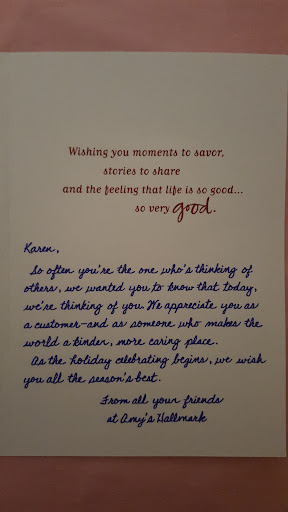 Wishing you moments to savor,
stories to share
and the feeling that life is so good...
so very good.
Karen,
So often you're the one who's thinking of
others, we wanted you to know that today,
we're thinking of you. We appreciate you as
a customer-and as someone who makes the
world a kinder, more caring place.
As the holiday celebrating begins, we wish
you all the season's best.
From all your friends
at Amy's Hallmark